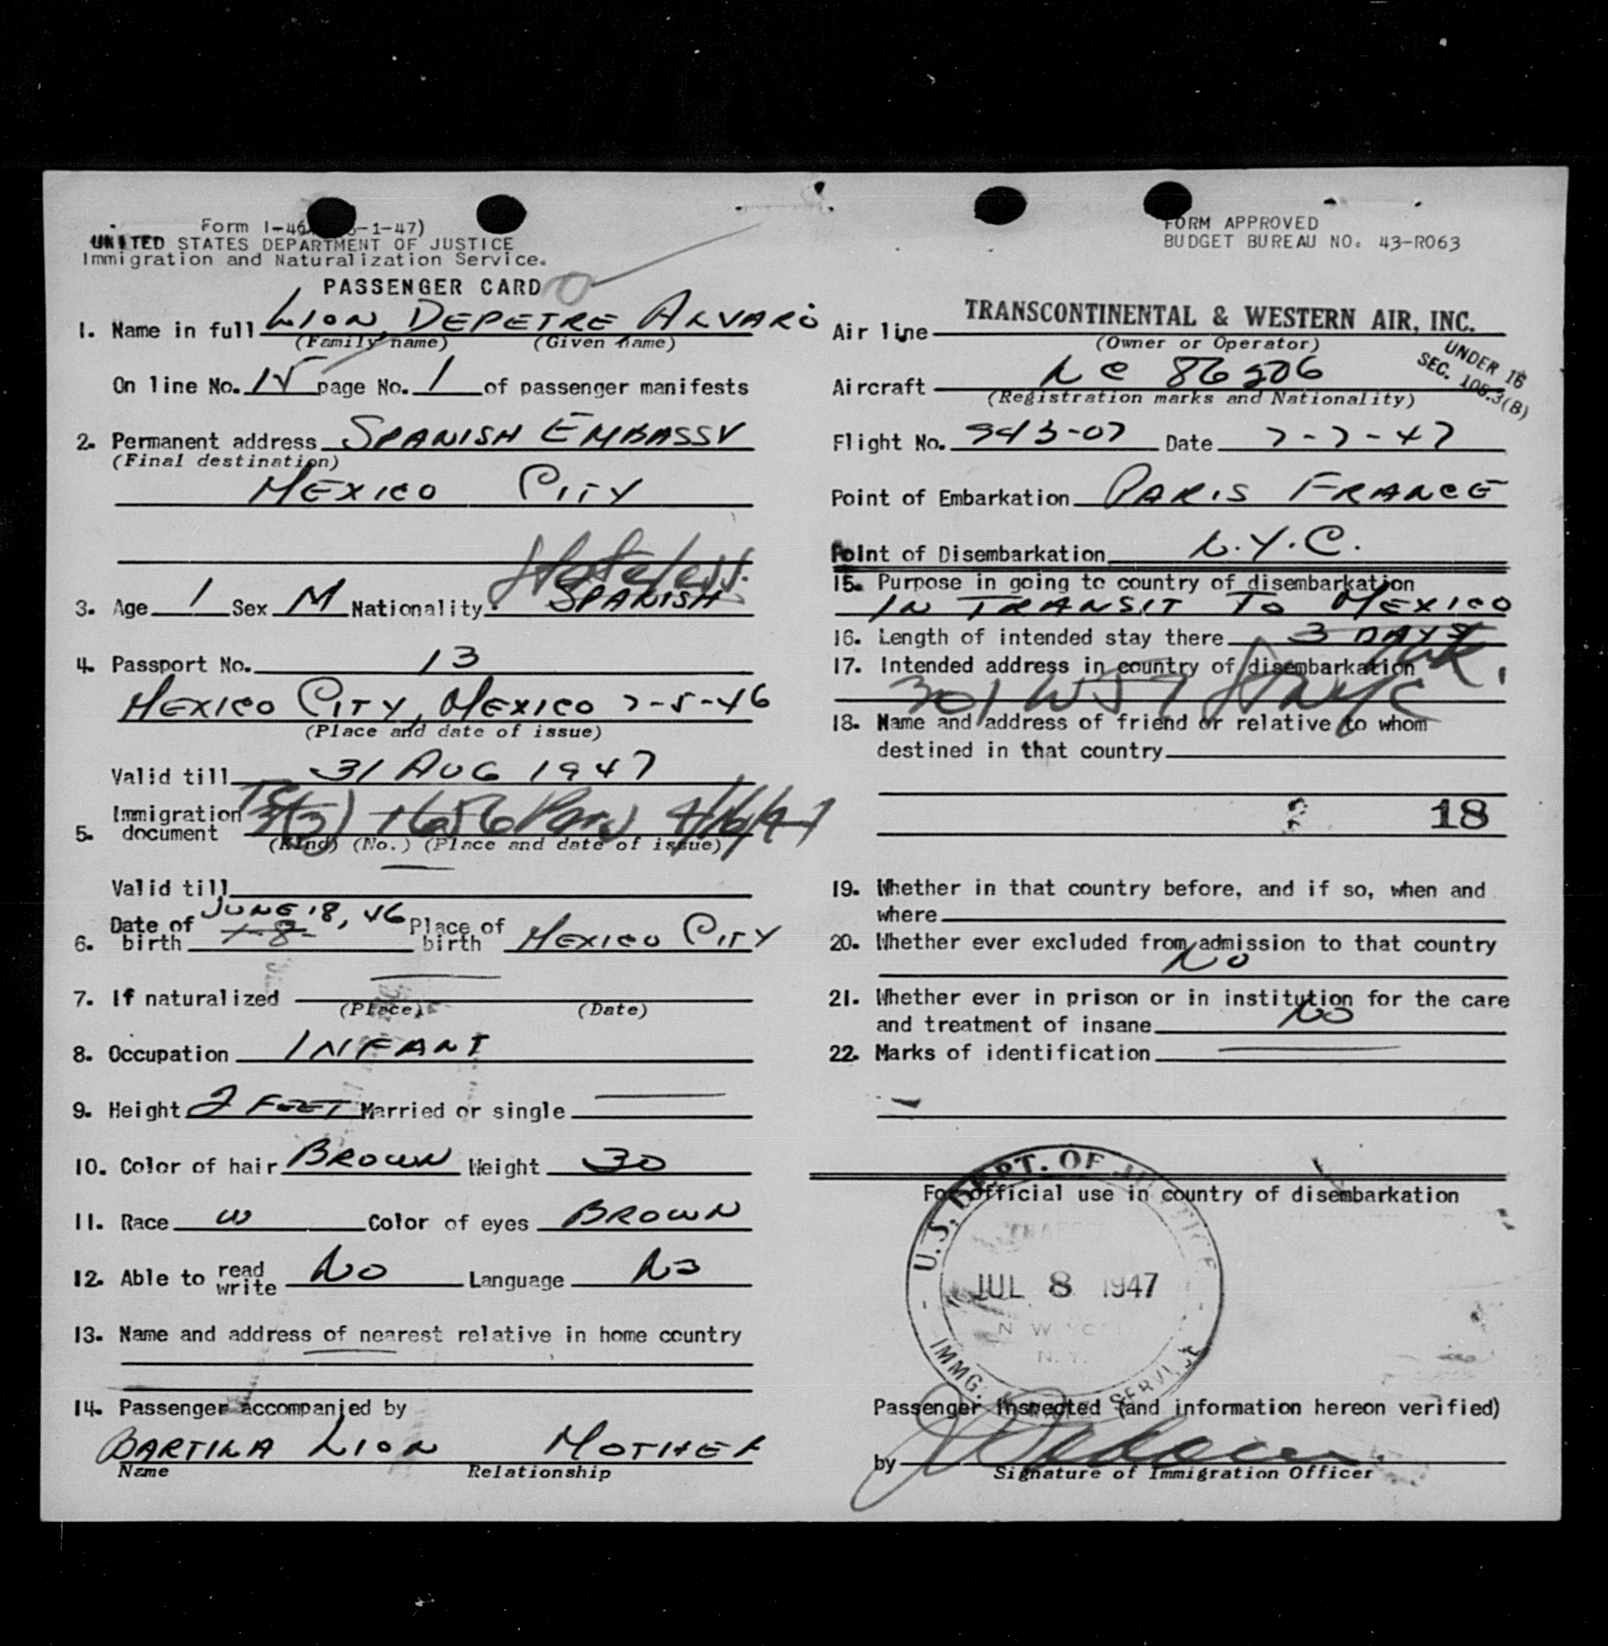 Form I-46 -1-47)
UNITED STATES DEPARTMENT OF JUSTICE
Immigration and Naturalization Service.
PASSENGER CARD
1. Name in full LION, DEPETRE ALVARO
(Family name) (Given name)
On line No. 15 page No. 1 of passenger manifests
2. Permanent address SPANISH EMBASSY
(Final destination)
MEXICO CITY
Stateless
3. Age 1 Sex M Nationality SPANISH
4. Passport No. 13
MEXICO CITY, MEXICO 7-5-46
(Place and date of issue)
Valid till 31 AUG 1947
5. Immigration document 3(3) 1656 Paris 4/16/47
(Kind) (No.) (Place and date of issue)
Valid till
JUNE 18, 46
6. Date of birth 1-8- Place of birth MEXICO CITY
7. If naturalized
(Place) (Date)
8. Occupation INFANT
9. Height 2 FEET Married or single
10. Color of hair BROWN Weight 30
11. Race W Color of eyes BROWN
12. Able to read write NO Language NO
13. Name and address of nearest relative in home country
14. Passenger accompanied by
BARTILA LION MOTHER
Name Relationship
FORM APPROVED
BUDGET BUREAU NO. 43-R063
Air line TRANSCONTINENTAL & WESTERN AIR, INC.
(Owner or Operator)
UNDER 16
SEC. 105.3(B)
Aircraft NC 86506
(Registration marks and Nationality)
Flight No. 943-07 Date 7-7-47
Point of Embarkation PARIS FRANCE
Point of Disembarkation N.Y.C.
15. Purpose in going to country of disembarkation
IN TRANSIT TO MEXICO
16. Length of intended stay there 3 DAYS
17. Intended address in country of disembarkation
301 W 57 St NYC
18. Name and address of friend or relative to whom
destined in that country
18
19. Whether in that country before, and if so, when and
where
20. Whether ever excluded from admission to that country
NO
21. Whether ever in prison or in institution for the care
and treatment of insane NO
22. Marks of identification
For official use in country of disembarkation
U.S. DEPT. OF JUSTICE
JUL 8 1947
NEW YORK
N.Y.
IMMG. SERVICE
Passenger Inspected (and information hereon verified)
by
Signature of Immigration Officer